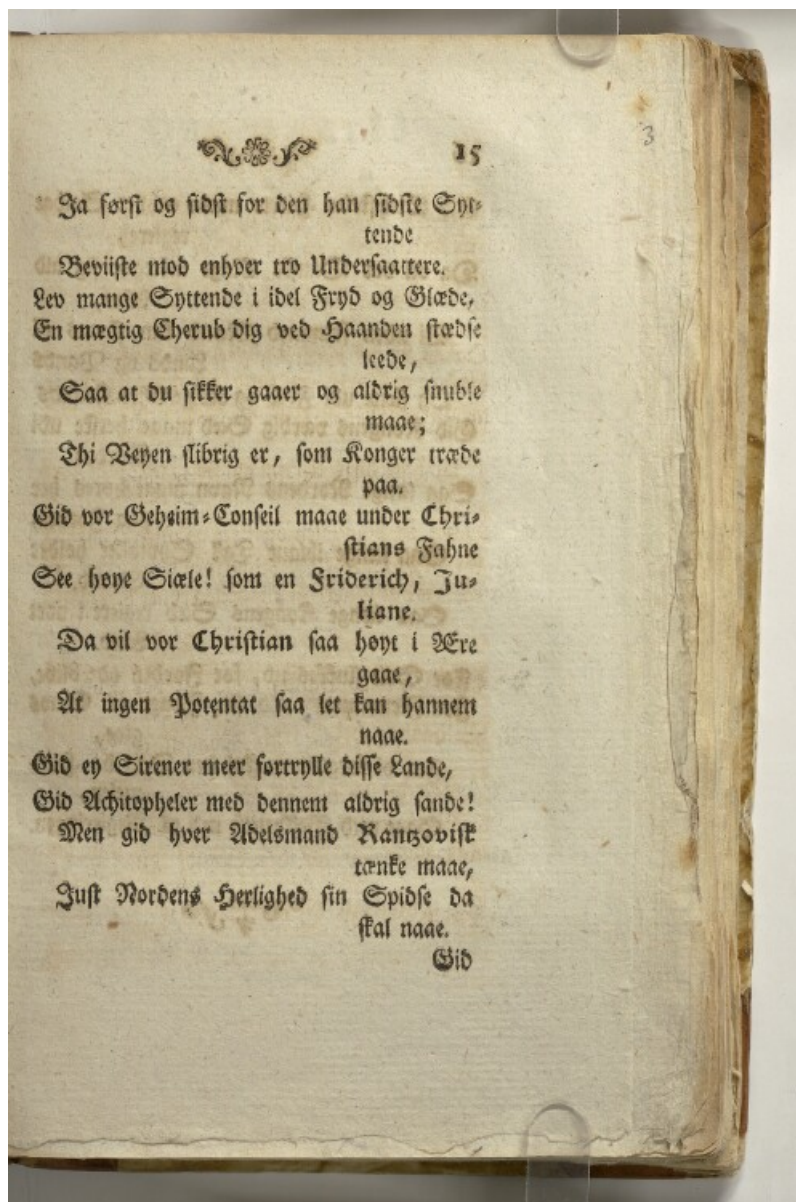 15
3
Ja først og sidst for den han sidste Syt-
tende
Beviiste mod enhver tro Undersaattere.
Lev mange Syttende i idel Fryd og Glæde,
En mægtig Cherub dig ved Haanden stædse
leede,
Saa at du sikker gaaer og aldrig snuble
maae;
Thi Veyen slibrig er, som Konger træde
paa.
Gid vor Geheim-Conseil maae under Chri-
stians Fahne
See høye Siæle! som en Friderich, Ju-
liane.
Da vil vor Christian saa høyt i Ære
gaae,
At ingen Potentat saa let kan hannem
naae.
Gid ey Sirener meer fortrylle disse Lande,
Gid Achitopheler med dennem aldrig sande!
Men gid hver Adelsmand Rantzovisk
tænke maae,
Just Nordens Herlighed sin Spidse da
skal naae.
Gid